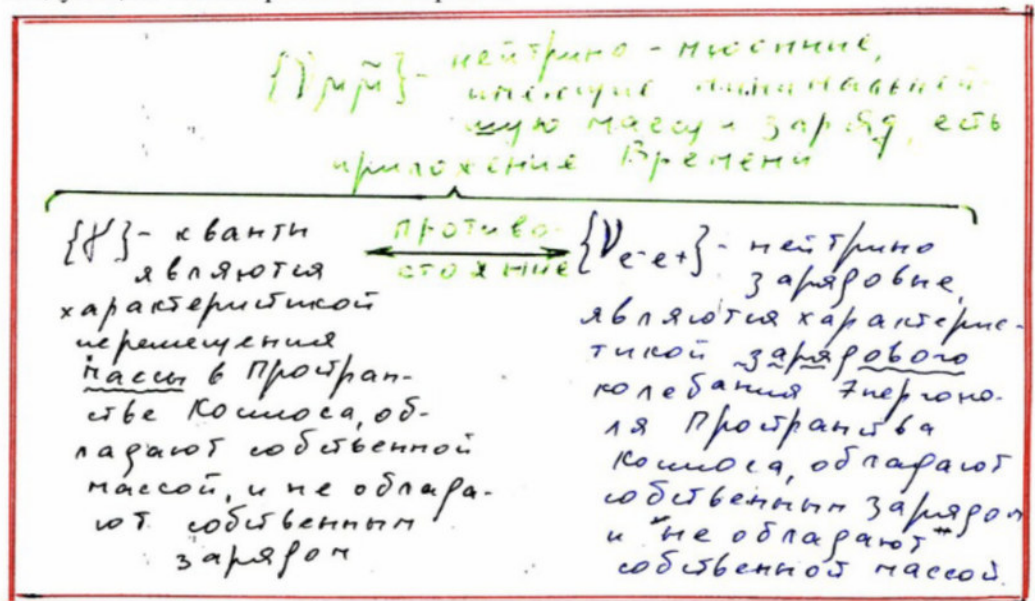 {ν μμ̃} - нейтрино - мюонние,
имеющие минимальней-
шую массу и заряд, есть
приложение Времени
{γ} - кванти
являются
характеристикой
перемещения
массы в Простран-
стве Космоса, об-
ладают собственной
массой, и не облада-
ют собственным
зарядом
противо-
стояние
{ν e-e+} - нейтрино
зарядовые,
являются характерис-
тикой зарядового
колебания Энергопо-
ля Пространства
Космоса, обладают
собственным зарядом
и "не обладают"
собственной массой.